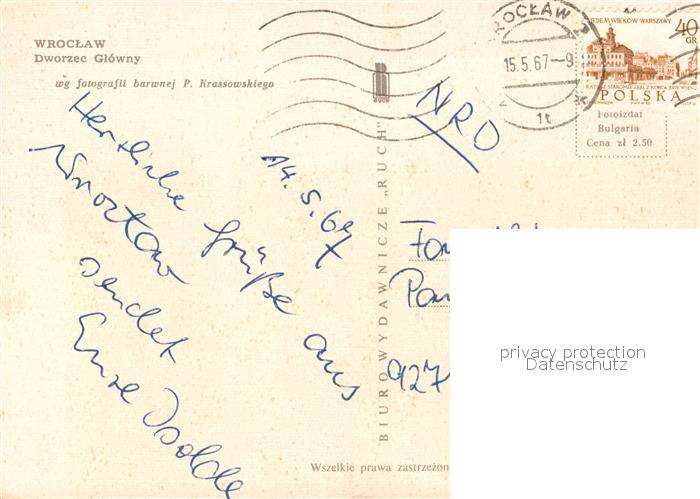 WROCŁAW
Dworzec Główny
wg fotografii barwnej P. Krassowskiego
WROCŁAW 2
15.5.67-9
1t
SIEDEM WIEKÓW WARSZAWY
40
GR
POLSKA
Fotoizdat
Bulgaria
Cena zł 2.50
RUCH
BIURO WYDAWNICZE „RUCH"
NRD
14.5.67
Herzliche Grüße aus
Wrocław
sendet
Eure Isolde
927
privacy protection
Datenschutz
Wszelkie prawa zastrzeżone